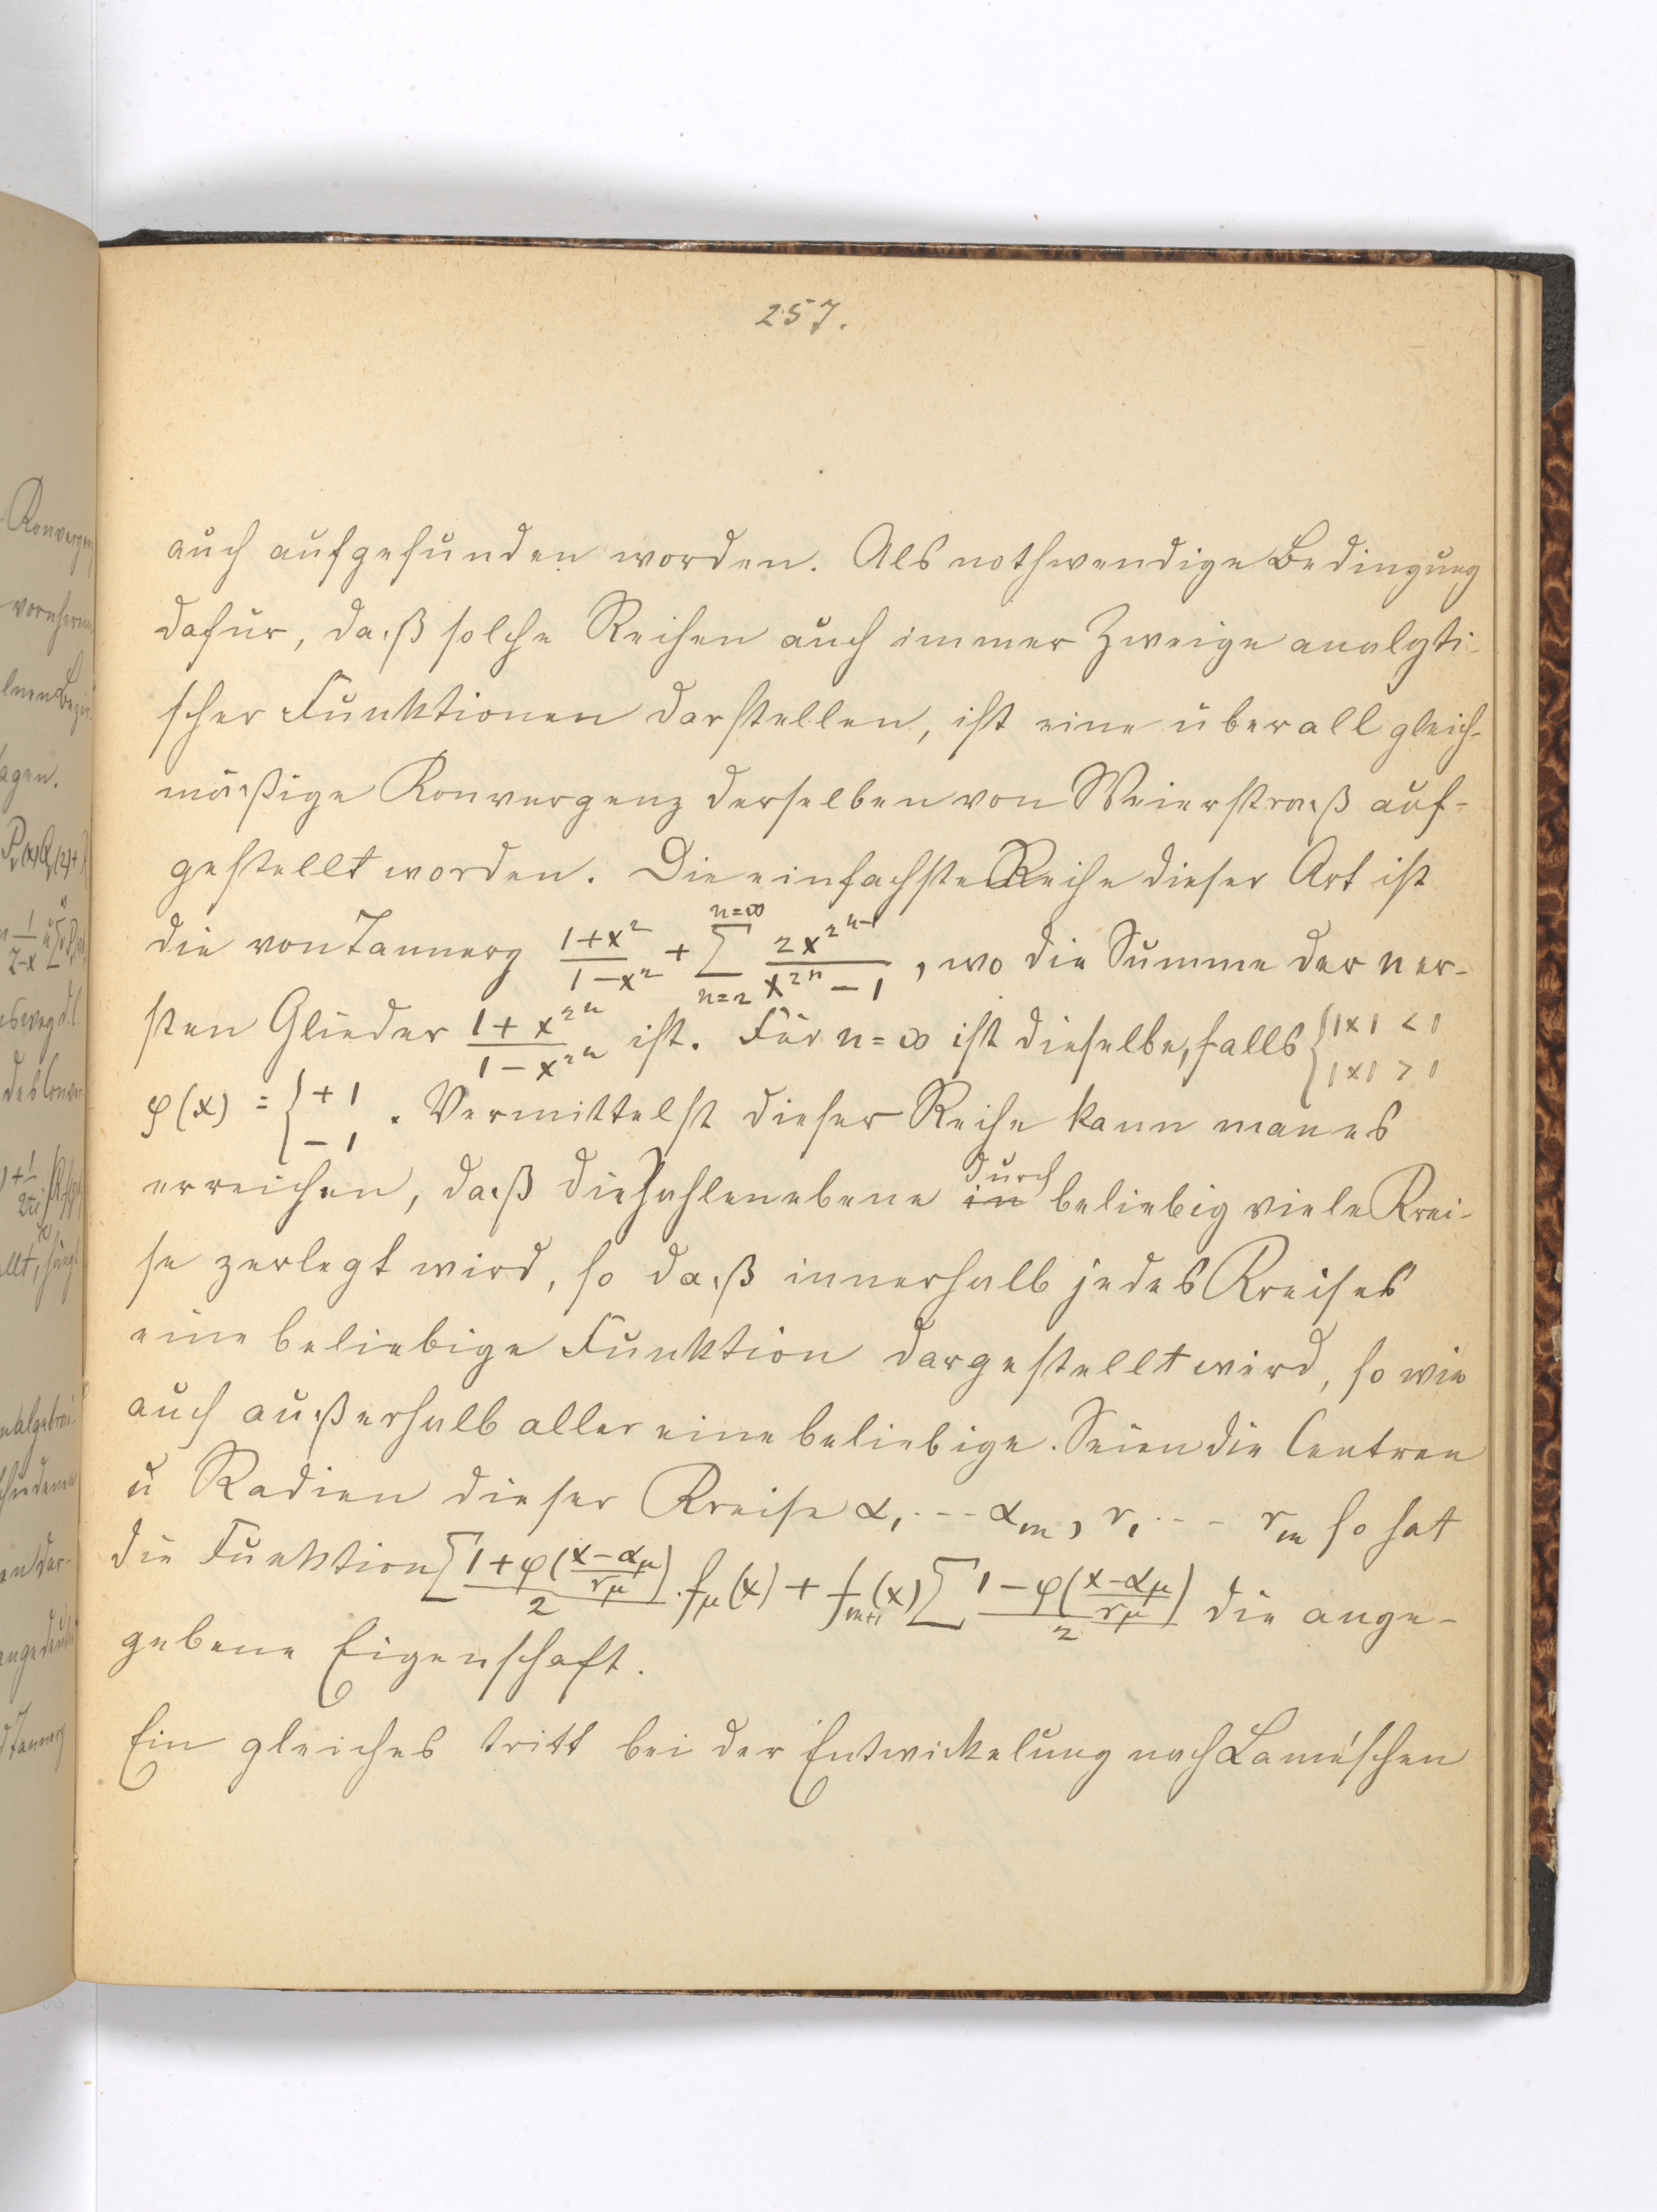 257.
auch aufgefunden worden. Als nothwendige Bedingung
dafür, daß solche Reihen auch immer Zweige analyti-
scher Funktionen darstellen, ist eine überall gleich-
mäßige Konvergenz derselben von Weierstraß auf-
gestellt worden. Die einfachste Reihe dieser Art ist
die von Tannery \frac{1+x^2}{1-x^2} + \sum_{n=2}^{n=\infty} \frac{2x^{2^{n-1}}}{x^{2^n}-1}, wo die Summe der n er-
sten Glieder \frac{1+x^{2^n}}{1-x^{2^n}} ist. Für n=∞ ist dieselbe, falls { |x| < 1 |x| > 1
φ(x) = { +1 −1 . Vermittelst dieser Reihe kann man es
erreichen, daß die Zahlenebene in durch beliebig viele Krei-
se zerlegt wird, so daß innerhalb jedes Kreises
eine beliebige Funktion dargestellt wird, so wie
auch außerhalb aller eine beliebige. Seien die Centren
u Radien dieser Kreise α_1 --- α_m, r_1 --- r_m so hat
die Funktion \sum \frac{1+φ(\frac{x-α_μ}{r_μ})}{2} . f_μ(x) + f_{m+1}(x) \sum \frac{1-φ(\frac{x-α_μ}{r_μ})}{2} die ange-
gebene Eigenschaft.
Ein gleiches tritt bei der Entwickelung nach Lamé'schen
Konvergen
vornherein
agen.